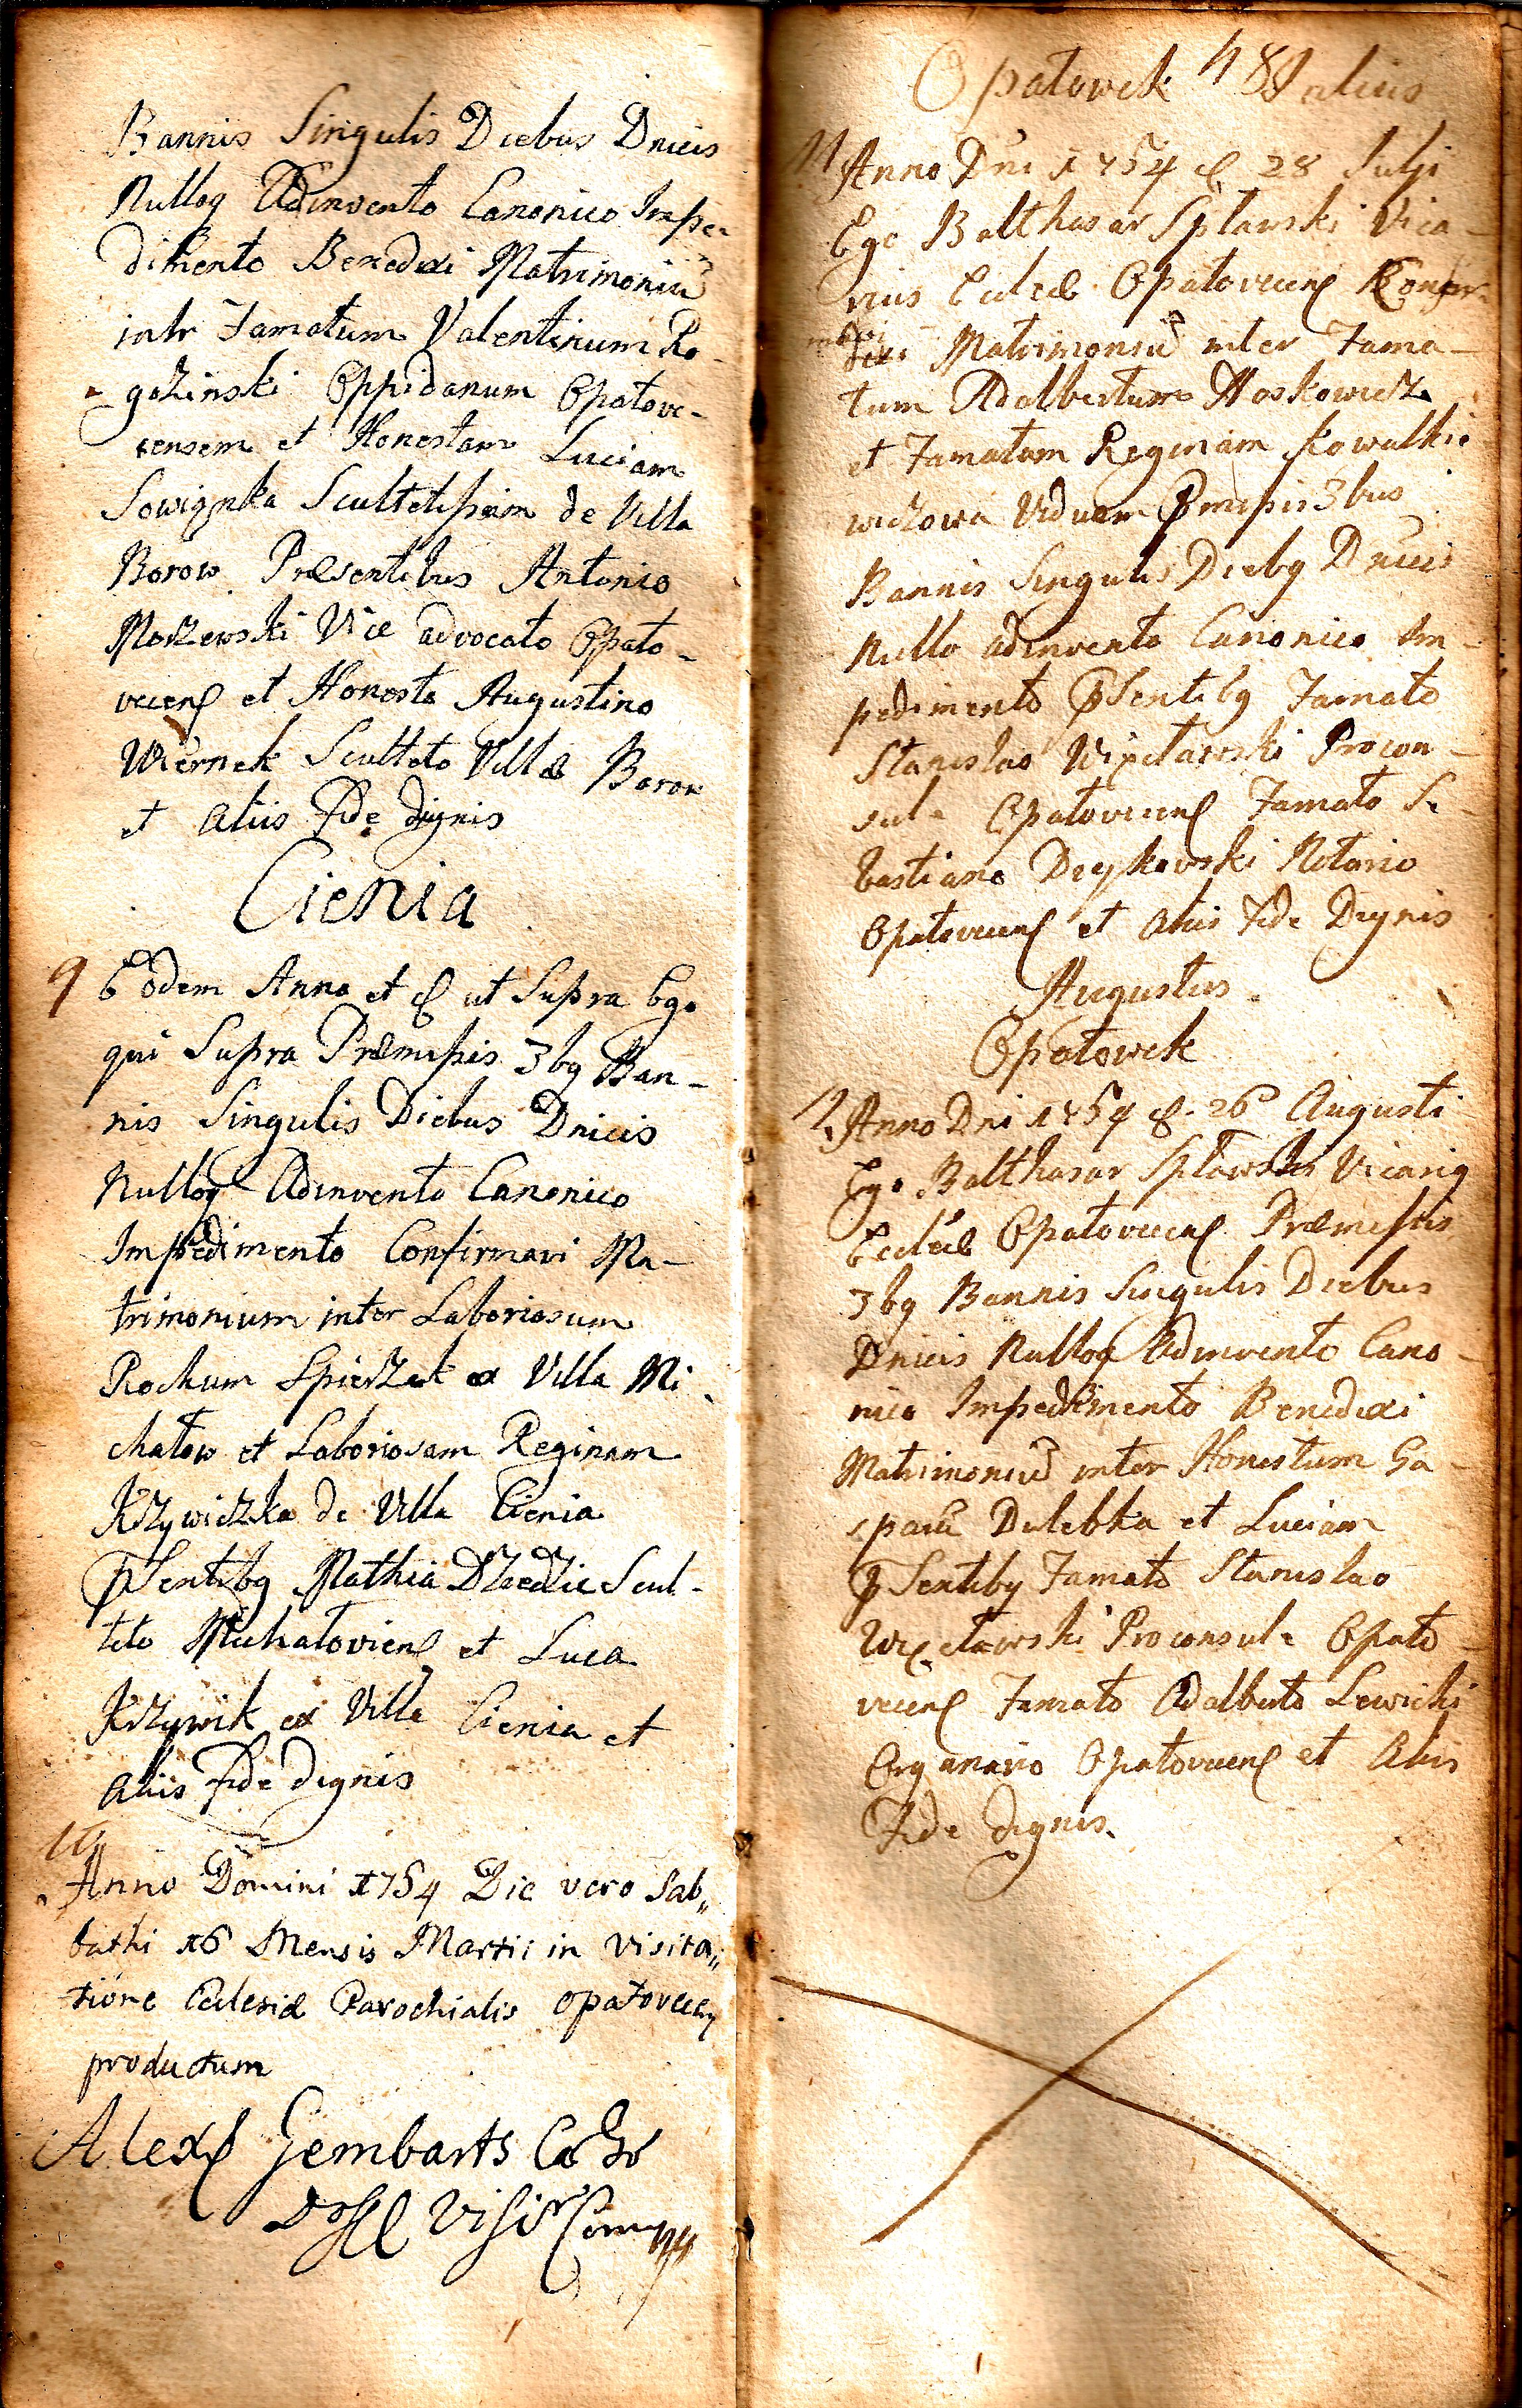 Bannis Singulis Diebus Dnicis
Nulloq Adinvento Canonico Impe-
dimento Benedixi Matrimoniũ
intr Famatum Valentinum Ro-
gozinski Oppidanum Opatove-
censem et Honestam Luciam
Sowiznka Scultetissam de Villa
Borow Præsentibus Antonio
Morzewski Vice advocato Opato-
vecens et Honesto Augustino
Wiernek Sculteto Villæ Borow
et aliis Fide dignis
Cienia
9 Eodem Anno et d ut Supra Ego
qui Supra Præmissis 3bq Ban-
nis Singulis Diebus Dnicis
Nulloq Adinvento Canonico
Impedimento Confirmavi Ma-
trimonium inter Laboriosum
Rochum Spierzak ex Villa Mi-
chałow et Laboriosam Reginam
Krzywiczka de Villa Cienia
pSentibq Mathia Dziedzic Scul-
teto Michałoviens et Luca
Krzywik ex Villa Cienia et
Aliis Fide dignis
10
Anno Domini 1754 Die vero Sab„
bathi 16 Mensis Martii in visita„
tione Ecclesiæ Parochialis Opatovecen
productum
Alex Gembarts
Visi
Opatowek 48 Julius
11 Anno Dni 1754 d 28 Julji
Ego Balthasar Spławski Vica-
rius Eclæ Opatovecens Confir-
mavi Matrimoniũ inter Fama-
tum Adalbertum Noskowicz
et Famatam Reginam Kowalkie-
wiczowa Viduam Pmissis 3bus
Bannis Singulis Diebq Dnicis
Nullo adinvento Canonico Im-
pedimento pSentibq Famato
Stanislao Więcławski Procon-
sule Opatovecens Famato Se-
bastiano Dreykowski Notario
Opatovecens et Aliis Fide Dignis
Augustus
Opatowek
12 Anno Dni 1754 d. 26 Augusti
Ego Balthasar Spławski Vicariq
Eccleæ Opatovecens Præmissis
3bq Bannis Singulis Diebus
Dnicis Nulloq Adinvento Cano-
nico Impedimento Benedixi
Matrimoniũ inter Honestum Ga-
sparũ Dulebka et Luciam
pSentibq Famato Stanislao
Więcławski Proconsule Opato-
vecens Famato Adalberto Lewicki
Organario Opatovecens et Aliis
Fide dignis.